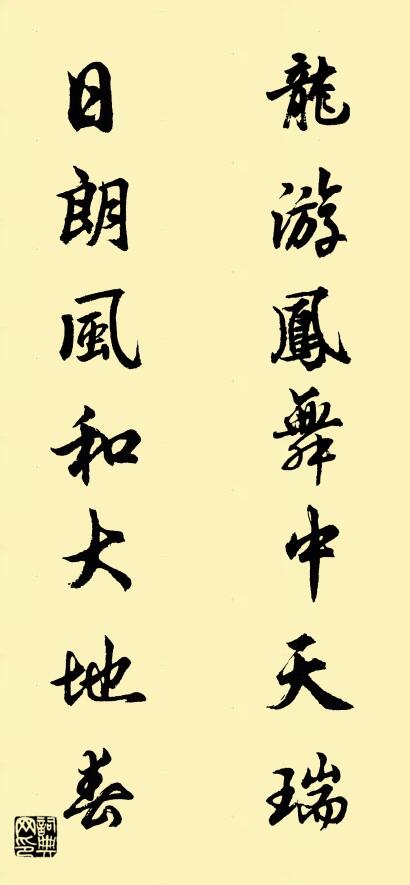 龍游鳳舞中天瑞
日朗風和大地春
詞典网印